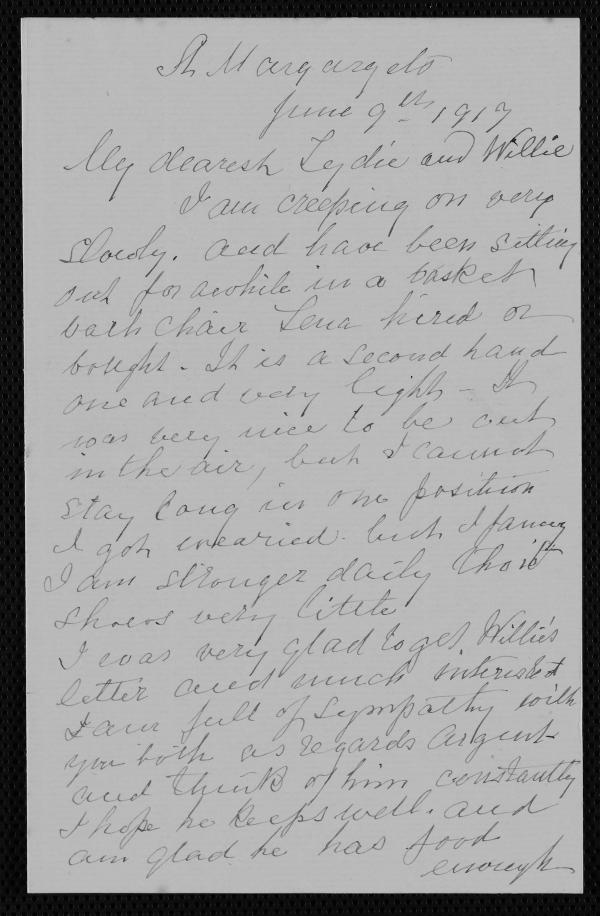 St Margargets
June 9th 1917
My dearest Lydie and Willie
I am creeping on very
slowly. and have been sitting
out for awhile in a basket
bath chair Lena hired or
bought. It is a second hand
one and very light - It
was very nice to be out
in the air, but I cannot
stay long in one position
I got wearied. but I fancy
I am stronger daily tho it
shows very little
I was very glad to get Willie's
letter and much interested
I am full of sympathy with
you both as regards Argent
and think of him constantly
I hope he keeps well. and
am glad he has food
enough